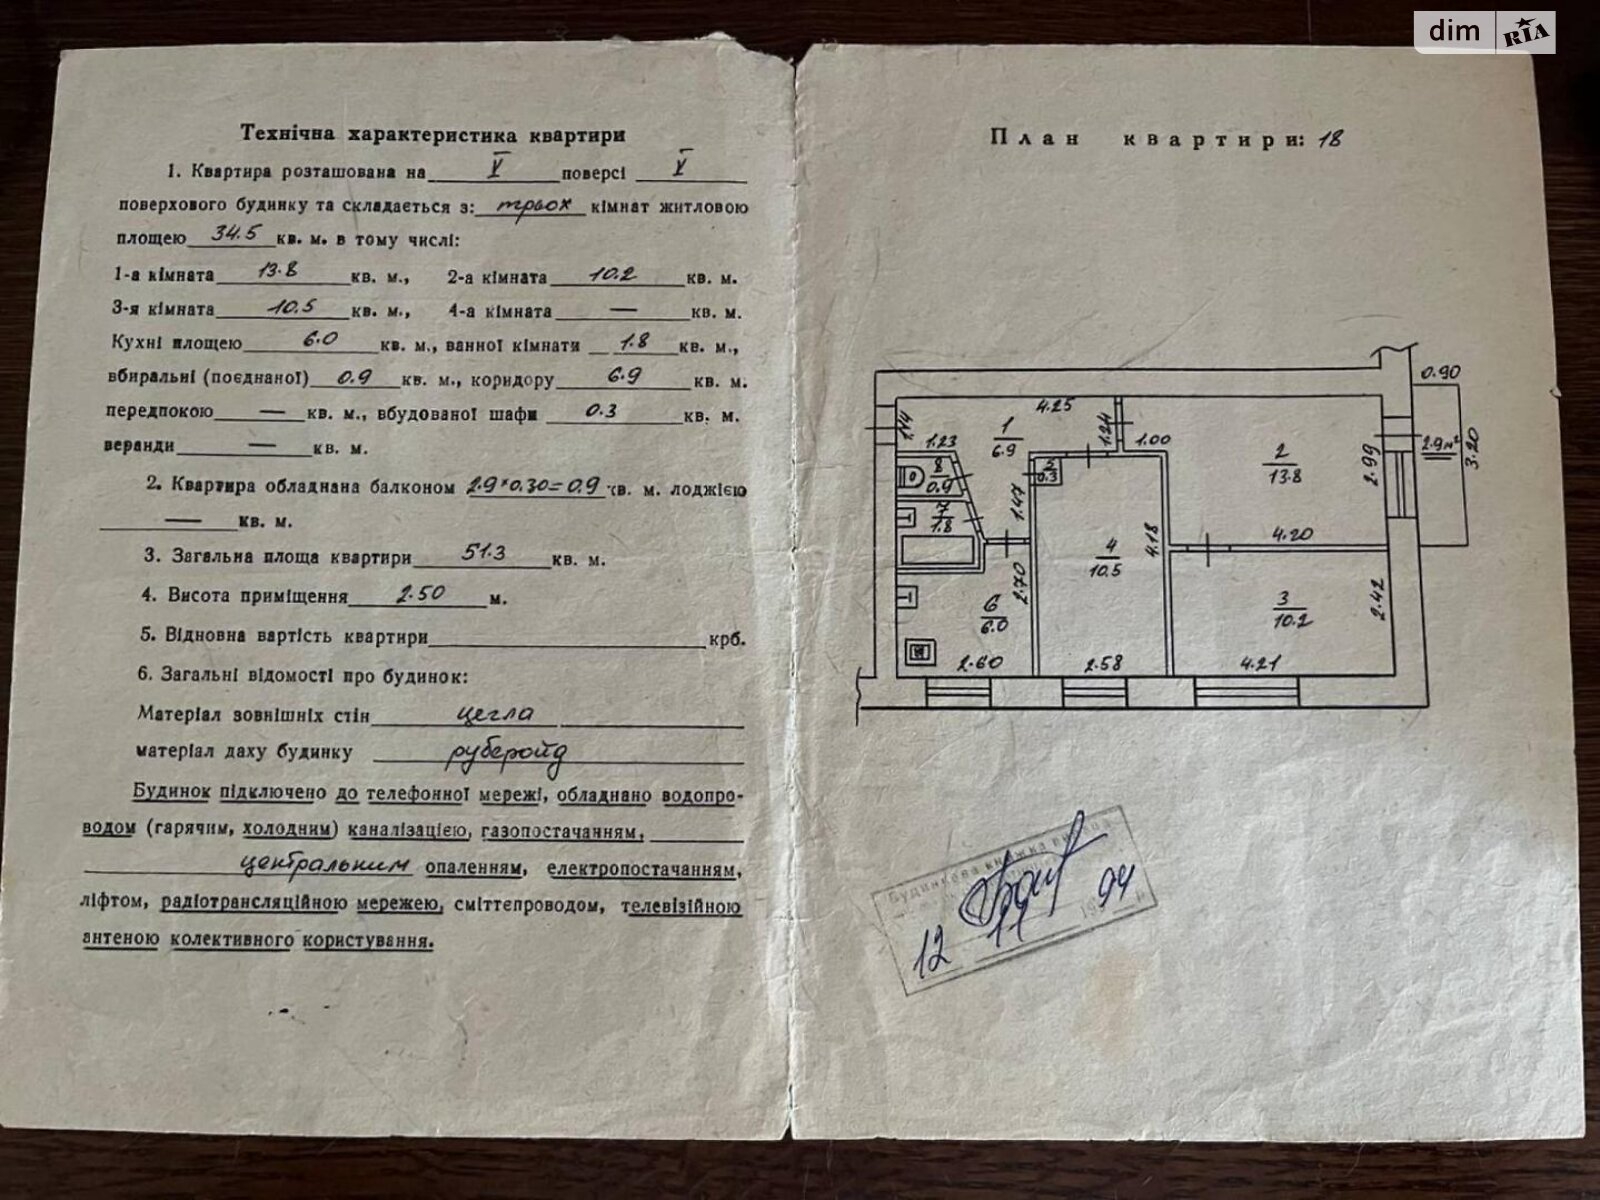 dim RIA
Технічна характеристика квартири
1. Квартира розташована на V поверсі V
поверхового будинку та складається з: трьох кімнат житловою
площею 34.5 кв. м. в тому числі:
1-а кімната 13.8 кв. м., 2-а кімната 10.2 кв. м.
3-я кімната 10.5 кв. м., 4-а кімната — кв. м.
Кухні площею 6.0 кв. м., ванної кімнати 1.8 кв. м.,
вбиральні (поєднаної) 0.9 кв. м., коридору 6.9 кв. м.
передпокою — кв. м., вбудованої шафи 0.3 кв. м.
веранди — кв. м.
2. Квартира обладнана балконом 2.9*0.30=0.9 кв. м. лоджією
— кв. м.
3. Загальна площа квартири 51.3 кв. м.
4. Висота приміщення 2.50 м.
5. Відновна вартість квартири крб.
6. Загальні відомості про будинок:
Матеріал зовнішніх стін цегла
матеріал даху будинку руберойд
Будинок підключено до телефонної мережі, обладнано водопро-
водом (гарячим, холодним) каналізацією, газопостачанням,
центральним опаленням, електропостачанням,
ліфтом, радіотрансляційною мережею, сміттєпроводом, телевізійною
антеною колективного користування.
План квартири: 18
0.90
4.25
1.44
1.23
1
6.9
1.24
1.00
2
13.8
2.99
2.9м²
3.20
8
0.9
5
0.3
1.47
7
1.8
4
10.5
4.18
4.20
2.70
6
6.0
3
10.2
2.42
2.60
2.58
4.21
Будинкова книжка
12 11 1994